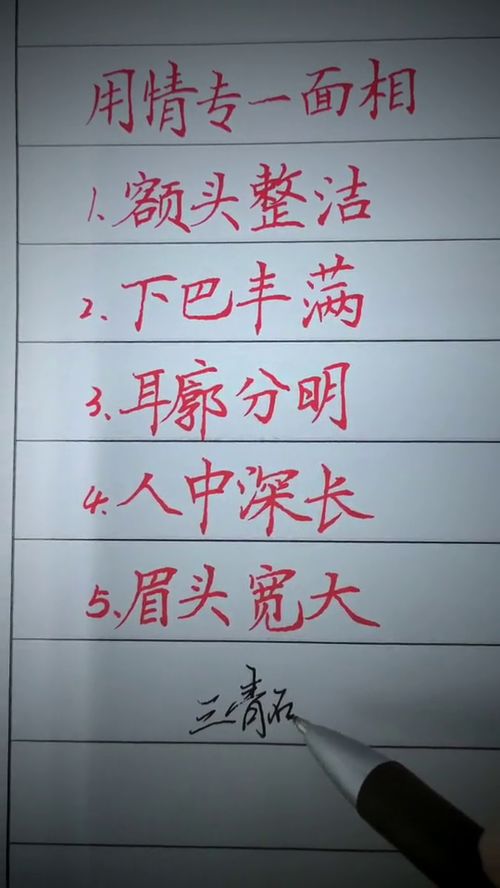 用情专一面相
1、额头整洁
2、下巴丰满
3、耳廓分明
4、人中深长
5、眉头宽大
三青石